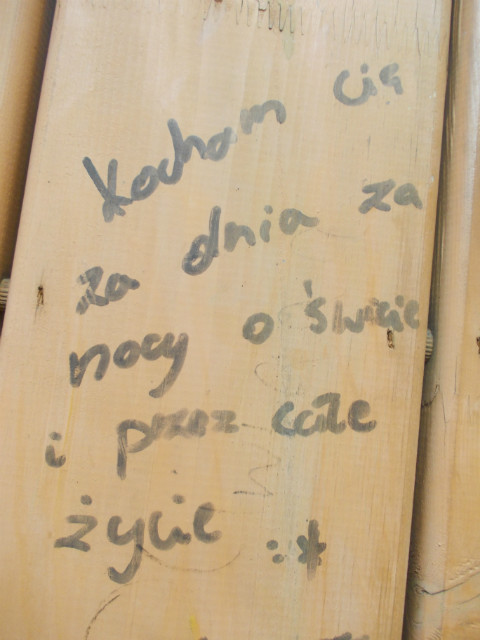 Kocham cię
za dnia za
nocy o świcie
i przez całe
życie :*